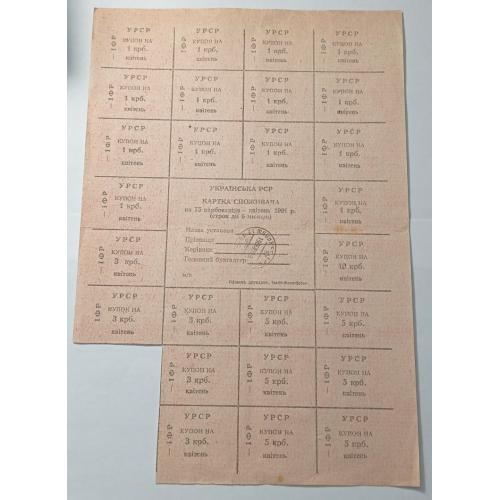 УРСР
КУПОН НА
1 крб.
квітень
— ІФР
УРСР
КУПОН НА
1 крб.
квітень
— ІФР
УРСР
КУПОН НА
1 крб.
квітень
— ІФР
УРСР
КУПОН НА
1 крб.
квітень
— ІФР
УРСР
КУПОН НА
1 крб.
квітень
— ІФР
УРСР
КУПОН НА
1 крб.
квітень
— ІФР
УРСР
КУПОН НА
1 крб.
квітень
— ІФР
УРСР
КУПОН НА
1 крб.
квітень
— ІФР
УРСР
КУПОН НА
1 крб.
квітень
— ІФР
УРСР
КУПОН НА
1 крб.
квітень
— ІФР
УРСР
КУПОН НА
1 крб.
квітень
— ІФР
УРСР
КУПОН НА
1 крб.
квітень
— ІФР
УРСР
КУПОН НА
1 крб.
квітень
— ІФР
УКРАЇНСЬКА РСР
КАРТКА СПОЖИВАЧА
на 75 карбованців — квітень 1991 р.
(строк дії 6 місяців)
Назва установи
Прізвище
Керівник
Головний бухгалтер
м/п
УРСР
КУПОН НА
1 крб.
квітень
— ІФР
УРСР
КУПОН НА
3 крб.
квітень
— ІФР
УРСР
КУПОН НА
10 крб.
квітень
— ІФР
УРСР
КУПОН НА
3 крб.
квітень
— ІФР
УРСР
КУПОН НА
3 крб.
квітень
— ІФР
УРСР
КУПОН НА
5 крб.
квітень
— ІФР
УРСР
КУПОН НА
5 крб.
квітень
— ІФР
УРСР
КУПОН НА
3 крб.
квітень
— ІФР
УРСР
КУПОН НА
5 крб.
квітень
— ІФР
УРСР
КУПОН НА
5 крб.
квітень
— ІФР
УРСР
КУПОН НА
3 крб.
квітень
— ІФР
УРСР
КУПОН НА
5 крб.
квітень
— ІФР
УРСР
КУПОН НА
5 крб.
квітень
— ІФР